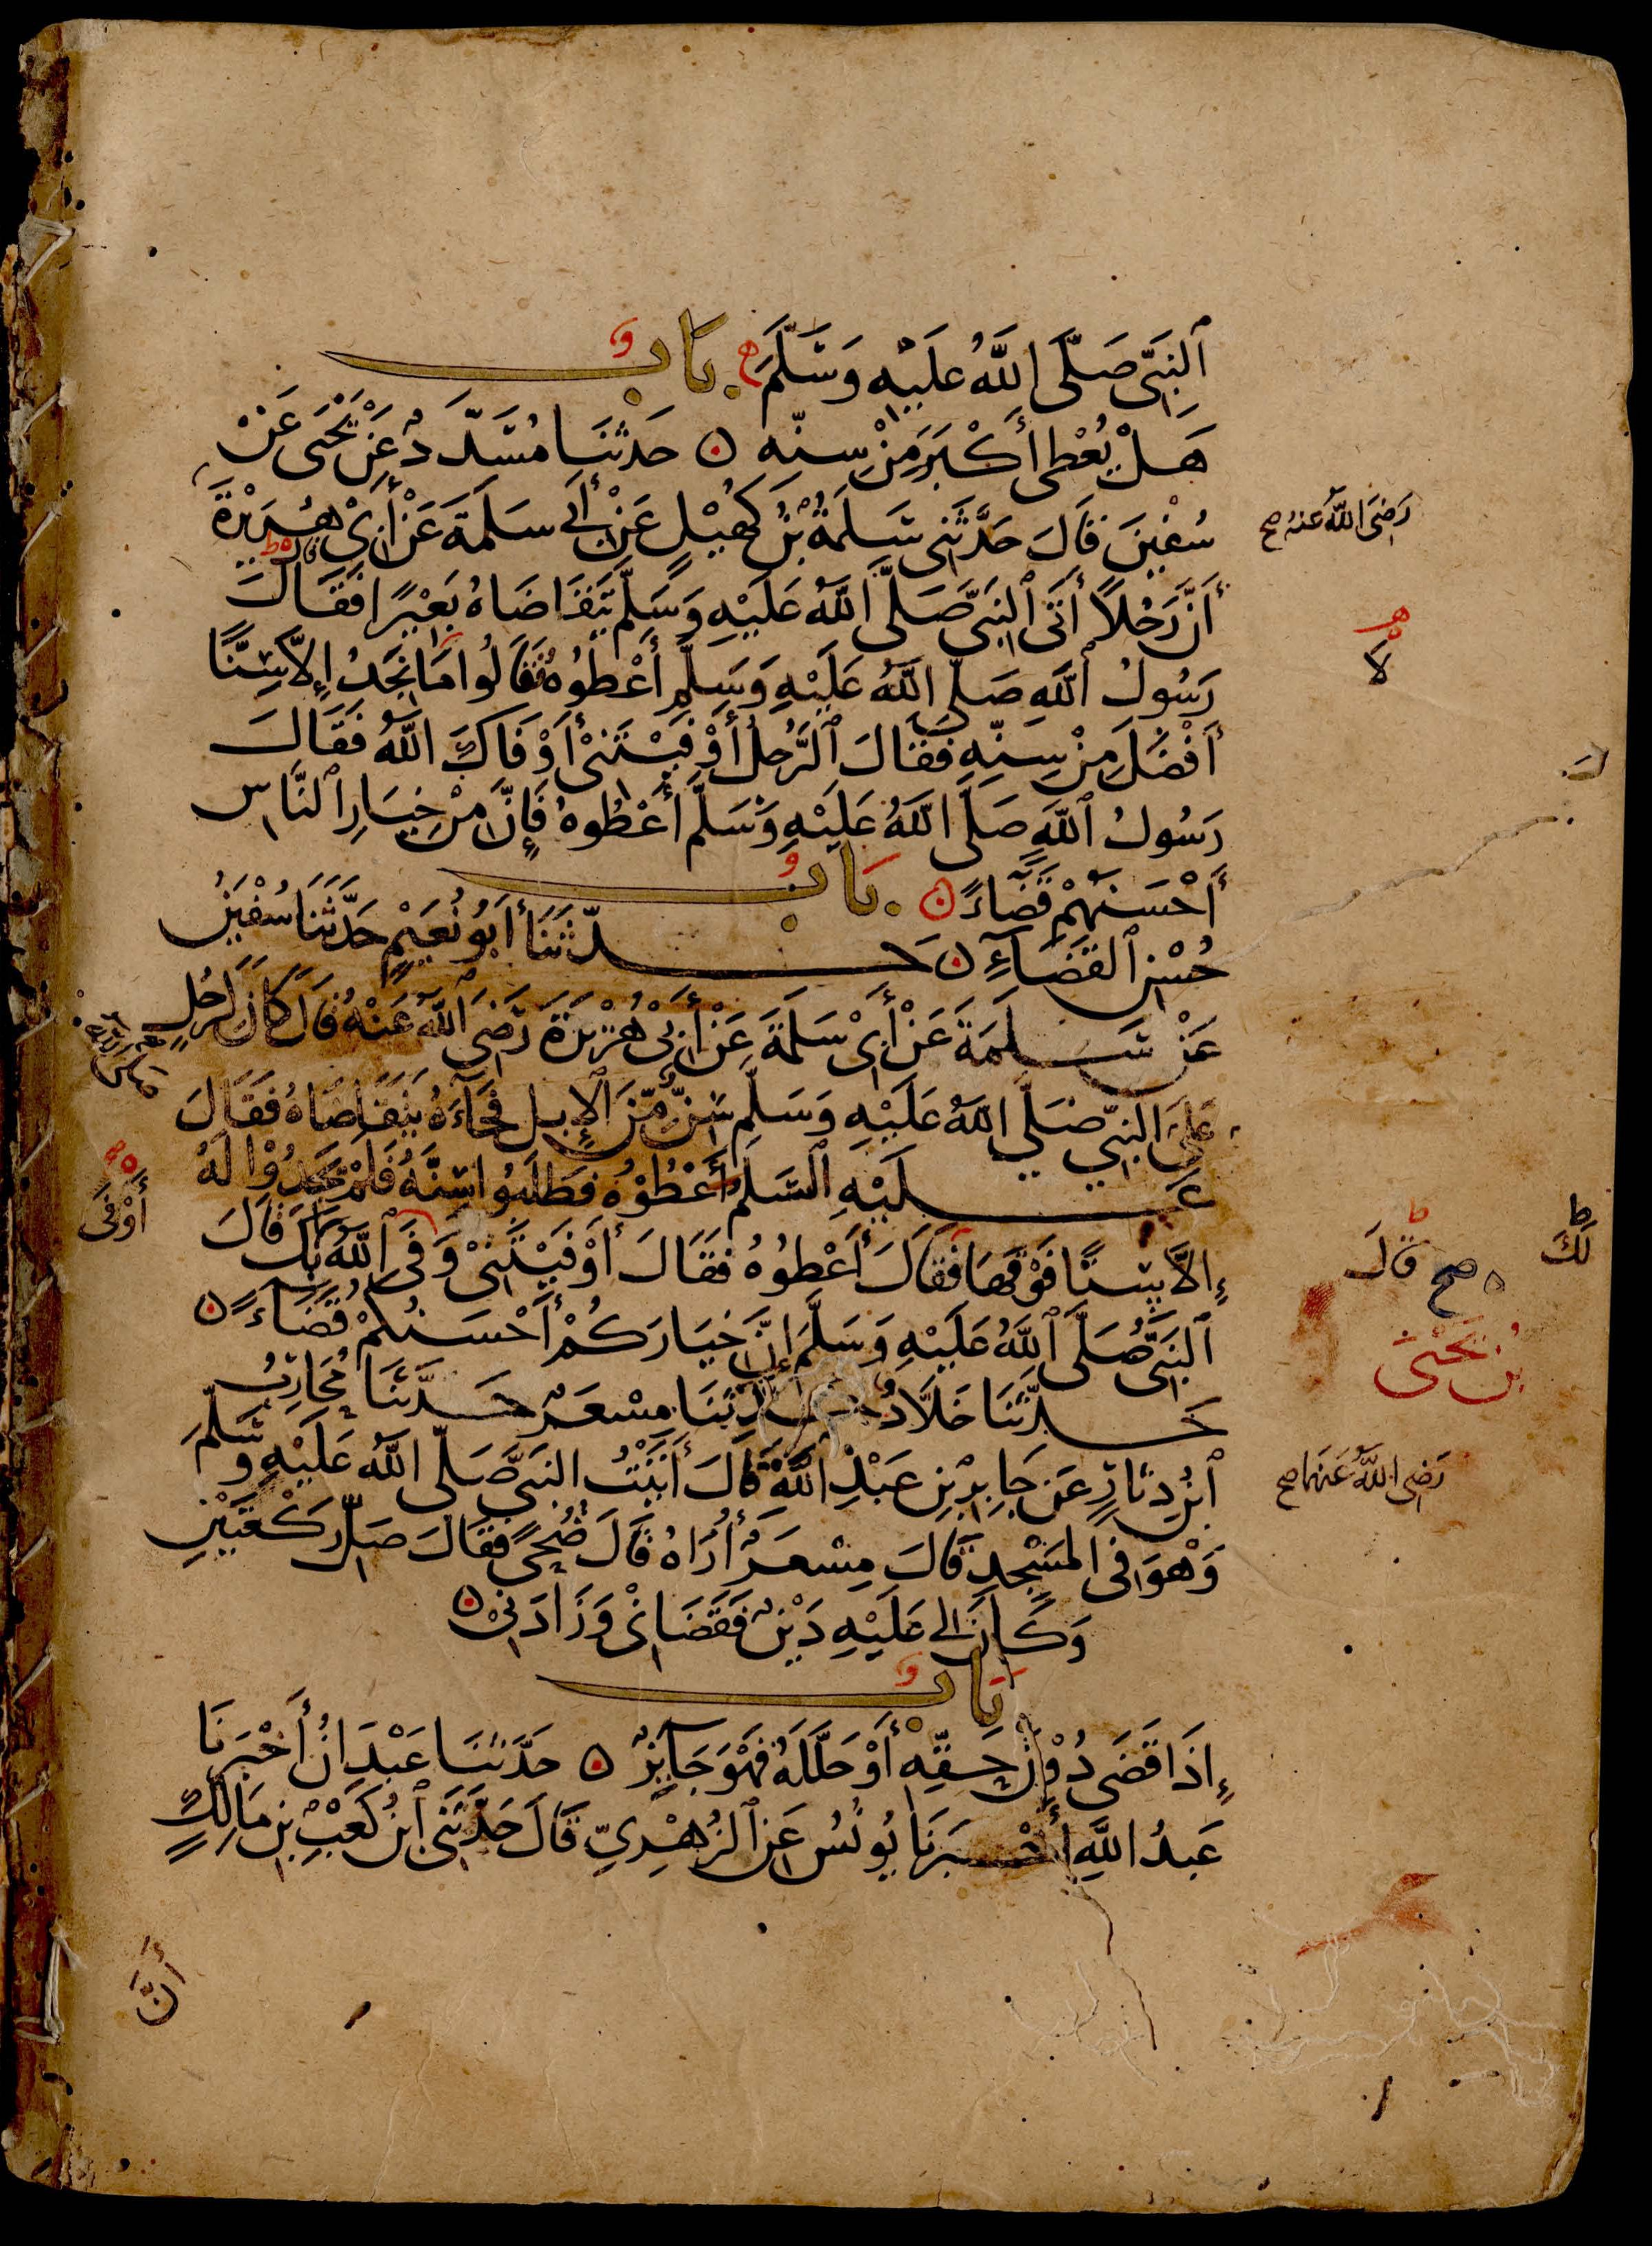 ٱلنَّبِيِّ صَلَّى اللَّهُ عَلَيْهِ وَسَلَّمَ ۞ بَابُ
هَلْ يُعْطَى أَكْبَرَ مِنْ سِنِّهِ ۞ حَدَّثَنَا مُسَدَّدٌ عَنْ يَحْيَى عَنْ
سُفْيٰنَ قَالَ حَدَّثَنِي سَلَمَةُ بْنُ كُهَيْلٍ عَنْ أَبِي سَلَمَةَ عَنْ أَبِي هُرَيْرَةَ
رَضِيَ اللَّهُ عَنْهُ صح
أَنَّ رَجُلًا أَتَى ٱلنَّبِيَّ صَلَّى اللَّهُ عَلَيْهِ وَسَلَّمَ يَتَقَاضَاهُ بَعِيْرًا فَقَالَ
رَسُولُ ٱللَّهِ صَلَّى اللَّهُ عَلَيْهِ وَسَلَّمَ أَعْطُوهُ فَقَالُوا مَا نَجِدُ إِلَّا سِنًّا
لا
أَفْضَلَ مِنْ سِنِّهِ فَقَالَ ٱلرَّجُلُ أَوْفَيْتَنِيْ أَوْفَاكَ اللَّهُ فَقَالَ
رَسُولُ ٱللَّهِ صَلَّى اللَّهُ عَلَيْهِ وَسَلَّمَ أَعْطُوهُ فَإِنَّ مِنْ خِيَارِ ٱلنَّاسِ
أَحْسَنَهُمْ قَضَاءً ۞ بَابُ
حُسْنِ ٱلقَضَاءِ ۞ حَدَّثَنَا أَبُو نُعَيْمٍ حَدَّثَنَا سُفْيٰنُ
عَنْ سَلَمَةَ عَنْ أَبِيْ سَلَمَةَ عَنْ أَبِيْ هُرَيْرَةَ رَضِيَ ٱللَّهُ عَنْهُ قَالَ كَانَ لِرَجُلٍ
عَلَى النَّبِيِّ صَلَّى اللَّهُ عَلَيْهِ وَسَلَّمَ سِنٌّ مِّنَ ٱلإِبِلِ فَجَآءَهُ يَتَقَاضَاهُ فَقَالَ
عَلَيْهِ ٱلسَّلَم أَعْطُوْهُ فَطَلَبُوا سِنَّهُ فَلَمْ يَجِدُوْا لَهُ
أَوْفَى
إِلَّا سِنًّا فَوْقَهَا فَقَالَ أَعْطُوهُ فَقَالَ أَوْفَيْتَنِيْ وَفَى ٱللَّهُ بِكَ قَالَ
لَكَ
قَالَ
صح
ٱلنَّبِيُّ صَلَّى ٱللَّهُ عَلَيْهِ وَسَلَّمَ إِنَّ خِيَارَكُمْ أَحْسَنُكُمْ قَضَاءً ۞
بْنُ يَحْيَى
حَدَّثَنَا خَلَّادٌ حَدَّثَنَا مِسْعَرٌ حَدَّثَنَا مُحَارِبُ
ٱبْنُ دِثَارٍ عَنْ جَابِرِ بْنِ عَبْدِ اللَّهِ قَالَ أَتَيْتُ النَّبِيَّ صَلَّى اللَّهُ عَلَيْهِ وَسَلَّمَ
رَضِيَ اللَّهُ عَنْهُمَا صح
وَهُوَ فِي المَسْجِدِ قَالَ مِسْعَرٌ أُرَاهُ قَالَ ضُحًى فَقَالَ صَلِّ رَكْعَتَيْنِ
وَكَانَ لِي عَلَيْهِ دَيْنٌ فَقَضَانِيْ وَزَادَنِيْ ۞
بَابُ
إِذَا قَضَى دُوْنَ حَقِّهِ أَوْ حَلَّلَهُ فَهْوَ جَآئِزٌ ۞ حَدَّثَنَا عَبْدَانُ أَخْبَرَنَا
عَبْدُ اللَّهِ أَخْبَرَنَا يُونُسُ عَنِ ٱلزُّهْرِيِّ قَالَ حَدَّثَنِي ٱبْنُ كَعْبِ بْنِ مَالِكٍ
أَنَّ